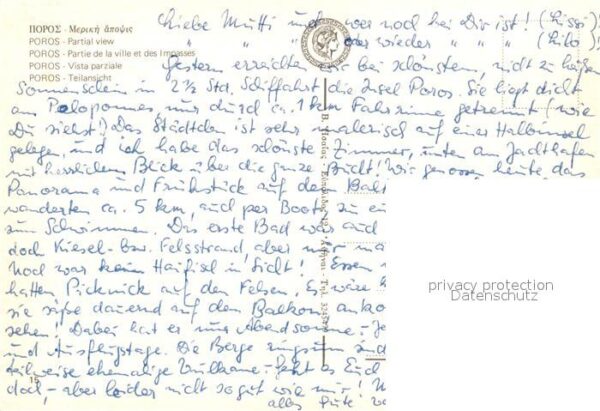 ΠΟΡΟΣ - Μερική άποψις
POROS - Partial view
POROS - Partie de la ville et des Impasses
POROS - Vista parziale
POROS - Teilansicht
Liebe Mutti und wer noch bei Dir ist! (Sissi)
" " " oder wieder " " " (Lilo)
Gestern erreichten wir bei schönstem, nicht zu heißen
Sonnenschein in 2½ Std. Schiffahrt die Insel Poros. Sie liegt dicht
am Peloponnes nur durch ca. 1 km Fahrrinne getrennt (wie
Du siehst). Das Städtchen ist sehr malerisch auf einer Halbinsel
gelegen, und ich habe das schönste Zimmer, unten am Jachthafen
mit herrlichem Blick über die ganze Bucht! Wir genossen heute das
Panorama und Frühstück auf dem Balk
wanderten ca. 5 km, auch per Boot zu ei
zum Schwimmen. Das erste Bad war auch
doch Kiesel- bzw. Felsstrand, aber nur
Noch war kein Haifisch in Sicht! Essen
hatten Picknick auf den Felsen. Es wäre
sie säße dauernd auf dem Balkon, anko
sehen! Dabei hat er nur Abendsonne -
und Ausflugstage. Die Berge ringsum sind
teilweise ehemalige Vulkane - Geht es Euch
doch, - aber leider nicht so gut wie mir!
alles Gute!
15
privacy protection
Datenschutz